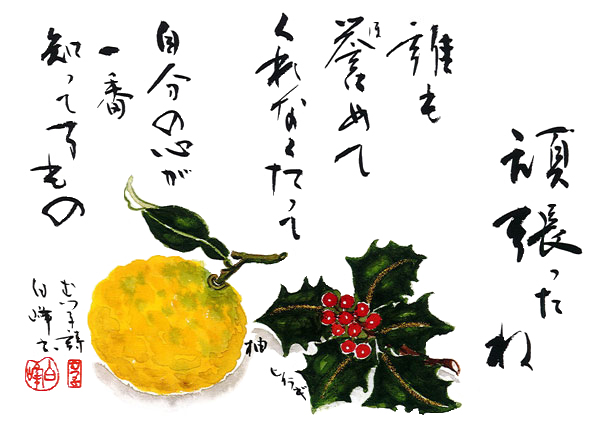 頑張ったね
誰も
誉めて
ほ
くれなくたって
自分の心が
一番
知ってるもの
柚
ヒイラギ
むつ子詩
白峰書
白峰